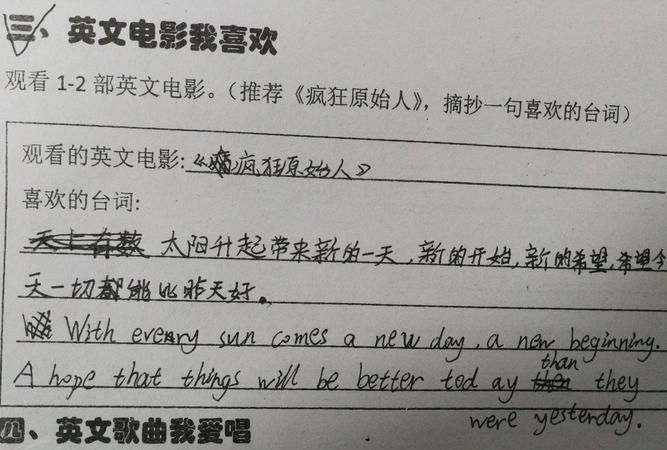 三、英文电影我喜欢
观看1-2部英文电影。（推荐《疯狂原始人》，摘抄一句喜欢的台词）
观看的英文电影:《疯狂原始人》
喜欢的台词:
太阳升起带来新的一天，新的开始，新的希望，希望今
天一切都能比昨天好。
With every sun comes a new day, a new beginning.
A hope that things will be better tod ay than they
were yesterday.
四、英文歌曲我爱唱